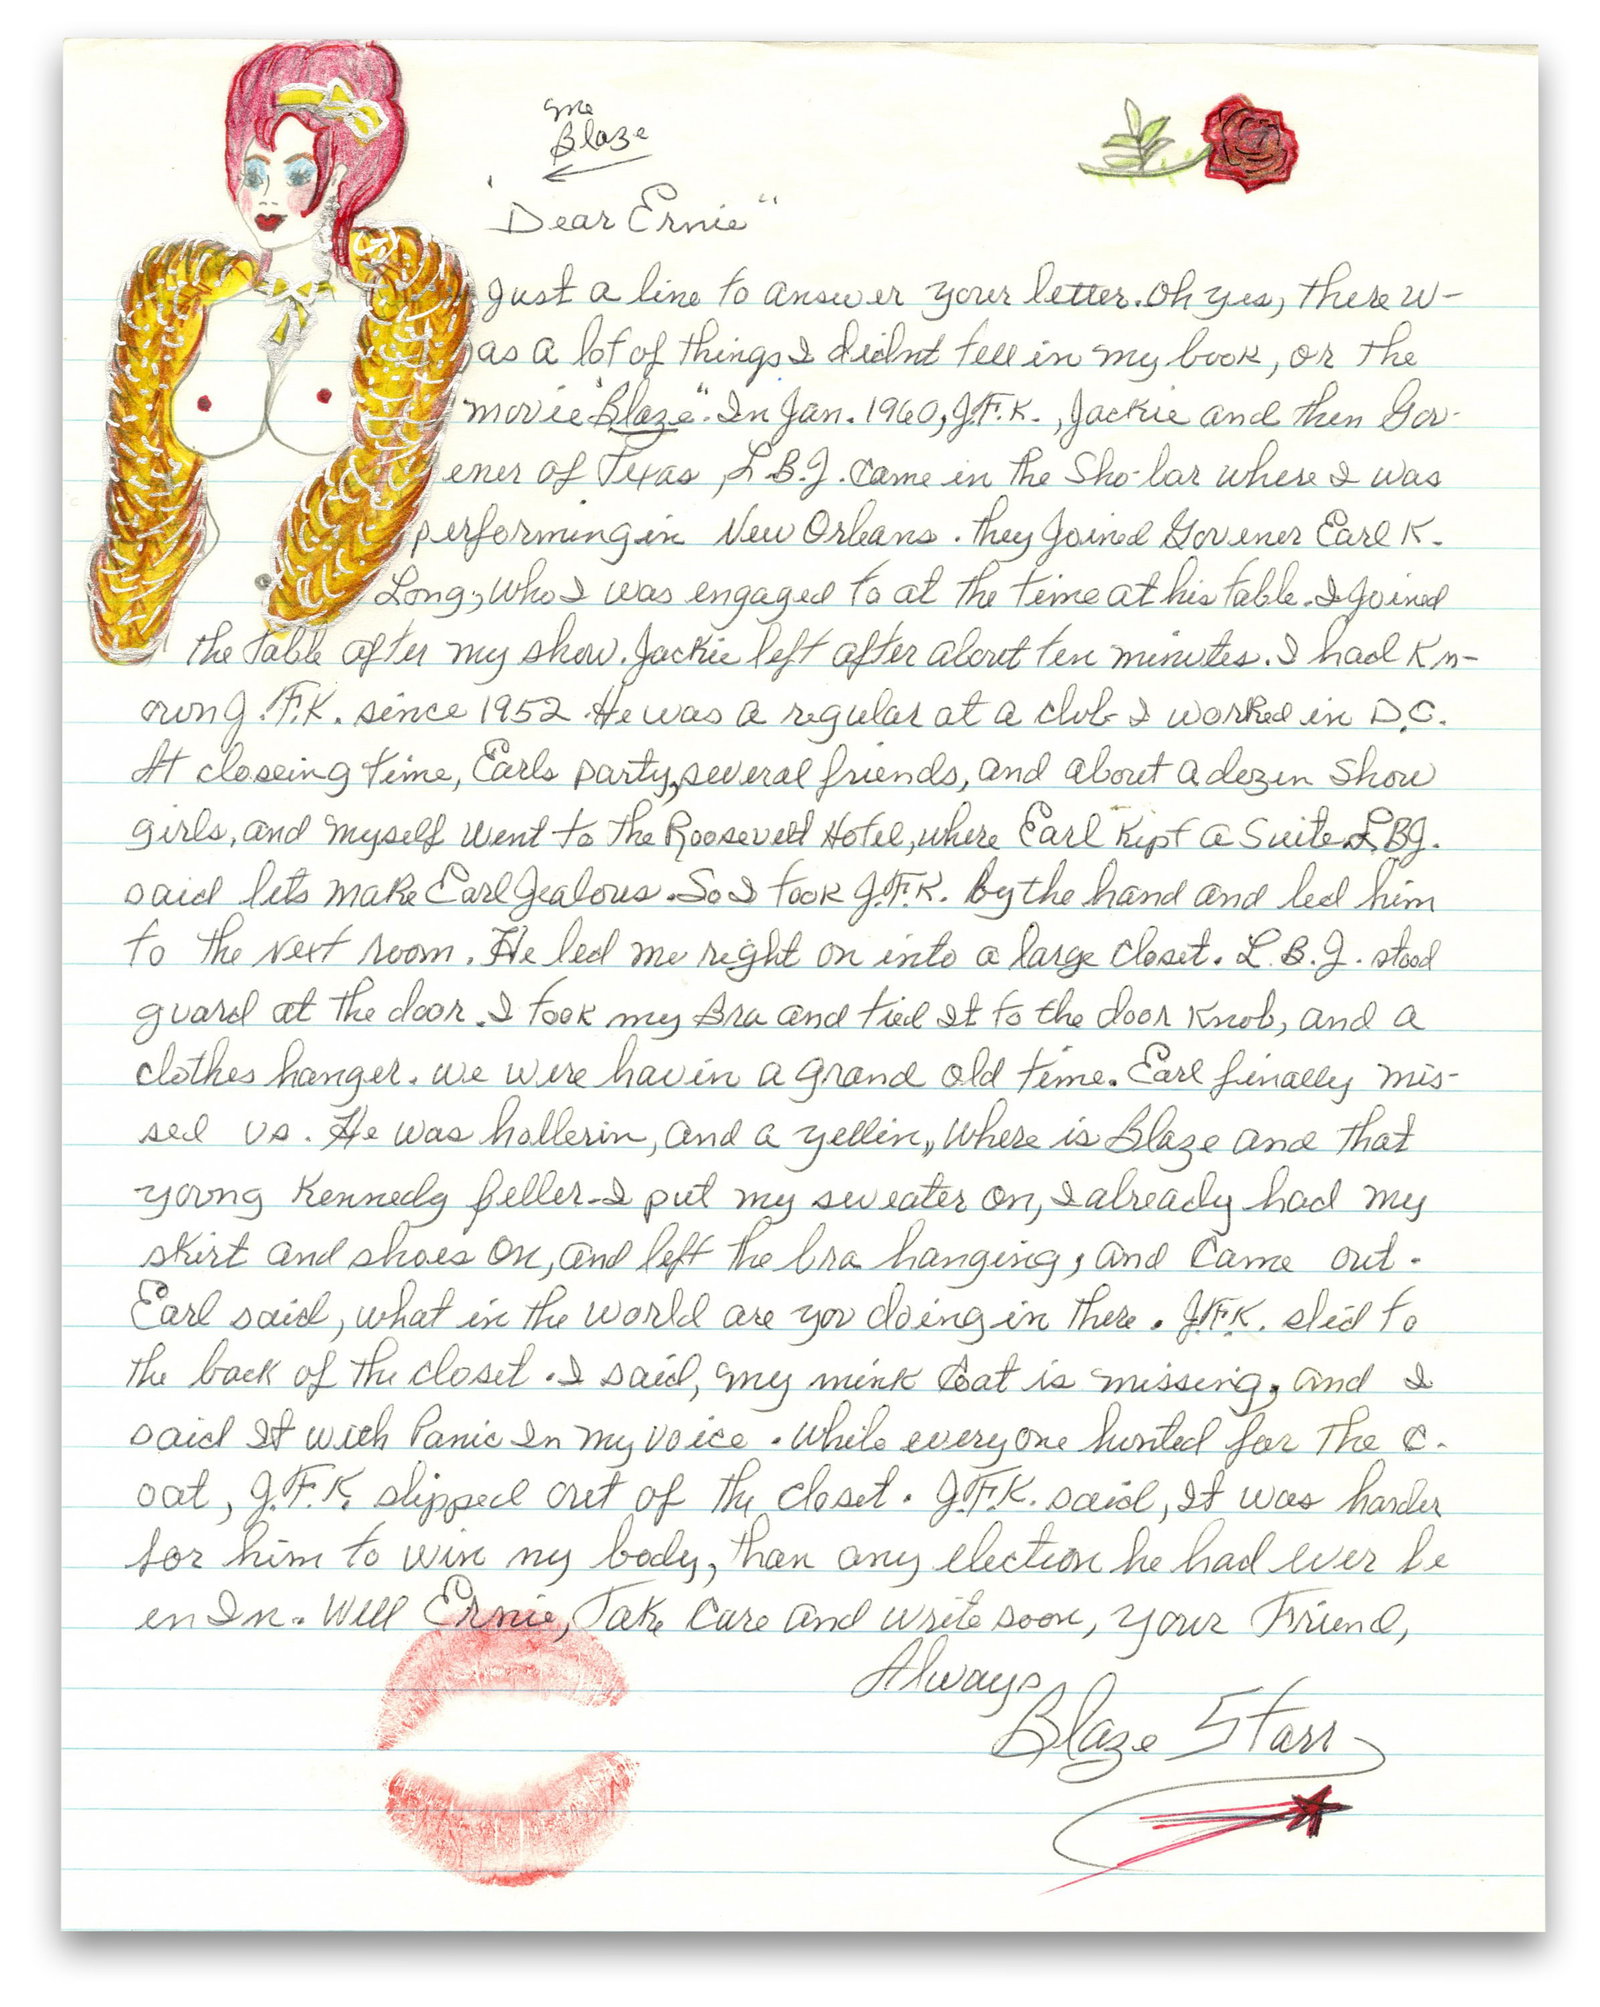 me
Blaze
"Dear Ernie"
Just a line to answer your letter. Oh yes, there w-
as a lot of things I didnt tell in my book, or the
movie "Blaze". In Jan. 1960, J.F.K., Jackie and then Gov-
ener of Texas, L.B.J. came in the Sho-bar where I was
performing in New Orleans. they Joined Govener Earl K.
Long, who I was engaged to at the time at his table. I Joined
the table after my show. Jackie left after about ten minutes. I had Kn-
own J.F.K. since 1952. He was a regular at a club I worked in D.C.
At closeing time, Earls party, several friends, and about a dozen show
girls, and myself went to the Roosevelt Hotel, where Earl Kept a Suite. L.B.J.
said lets make Earl Jealous. So I took J.F.K. by the hand and led him
to the next room. He led me right on into a large closet. L.B.J. stood
guard at the door. I took my Bra and tied It to the door Knob, and a
clothes hanger. we were havin a grand old time. Earl finally mis-
sed us. He was hollerin, and a yellin, where is Blaze and that
young Kennedy feller - I put my sweater on, I already had my
skirt and shoes on, and left the bra hanging, and came out.
Earl said, what in the world are you doing in there. J.F.K. slid to
the back of the closet. I said, my mink Coat is missing, and I
said It with Panic In my voice. while everyone hunted for the c-
oat, J.F.K. slipped out of the closet. J.F.K. said, It was harder
for him to win my body, than any election he had ever be
en In. Well Ernie, Take Care and write soon, your Friend,
Always
Blaze Starr